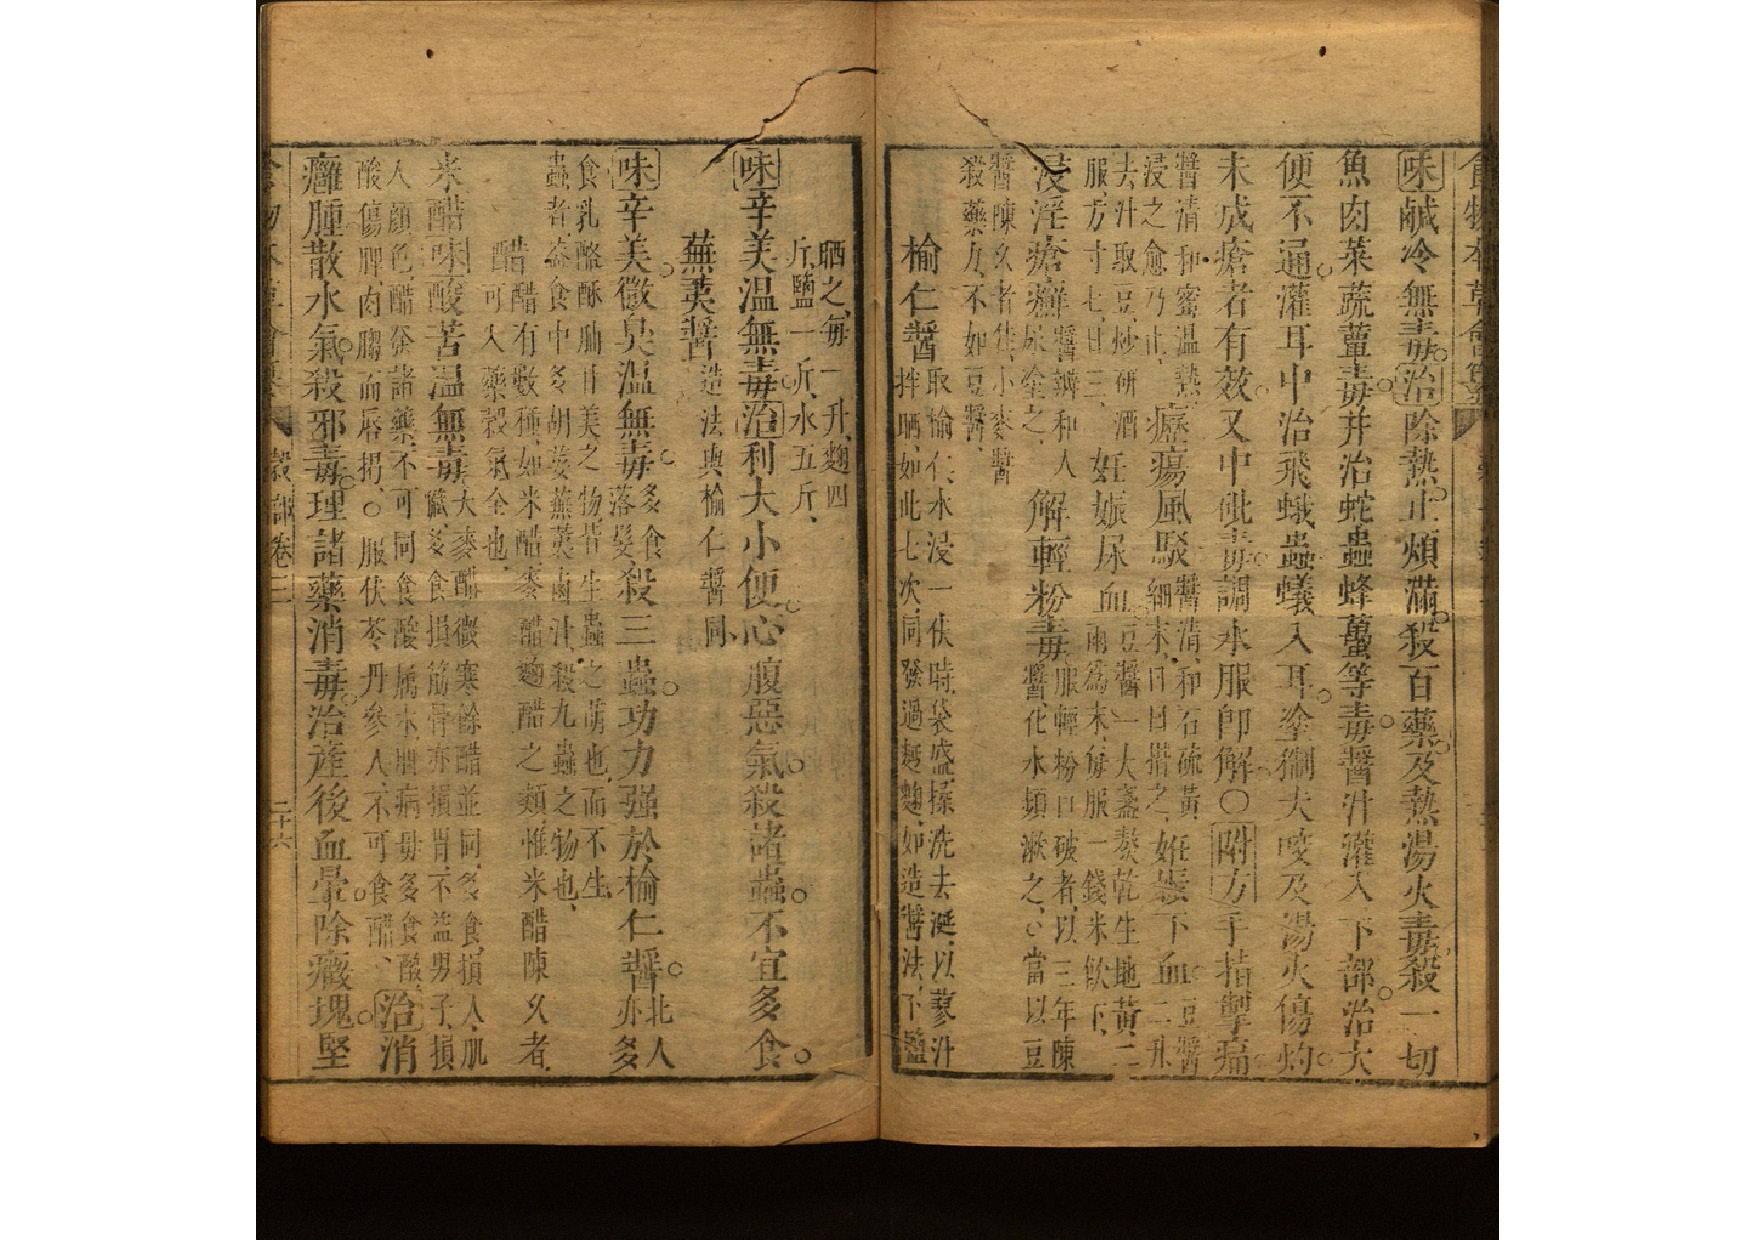 味鹹冷無毒治除熱止煩滿殺百藥及熱湯火毒殺一切
魚肉菜蔬蕈毒幷治蛇蟲蜂蠆等毒醬汁灌入下部治大
便不通灌耳中治飛蛾蟲蟻入耳塗猘犬咬及湯火傷灼
未成瘡者有效又中砒毒調水服卽解〇附方手指掣痛
醬清和蜜温熱浸之愈乃止
癧瘍風駁
醬清和石硫黃細末日日揩之
妊娠下血
豆醬二升去汁取豆炒研酒服方寸七日三
妊娠尿血
豆醬一大盞熬乾生地黃二兩為末每服一錢米飲下
浸淫瘡癬
醬瓣和人尿塗之
解輕粉毒
服輕粉口破者以三年陳醬化水頻漱之〇當以豆醬陳久者佳小麥醬殺藥力不如豆醬
榆仁醬
取榆仁水浸一伏時袋盛揉洗去涎以蓼汁拌晒如此七次同發過麵麴如造醬法下鹽晒之每一升麴四斤鹽一斤水五斤
味辛美温無毒治利大小便心腹惡氣殺諸蟲不宜多食
蕪荑醬
造法與榆仁醬同
味辛美微臭温無毒
多食落髮
殺三蟲功力强於榆仁醬
北人亦多食乳酪酥脂甘美之物皆生蟲之萌也而不生蟲者葢食中多胡荽蕪荑鹵汁殺九蟲之物也
醋
醋有數種如米醋麥醋麴醋之類惟米醋陳久者可入藥穀氣全也
米醋味酸苦温無毒
大麥醋微寒餘醋並同多食損人肌臟多食損筋骨亦損胃不益男子損人顔色醋發諸藥不可同食酸屬木脾病毋多食酸酸傷脾肉䐢而唇揭〇服伏苓丹參人不可食醋
治消
癰腫散水氣殺邪毒理諸藥消毒治產後血暈除癥塊堅
卷三
二十六